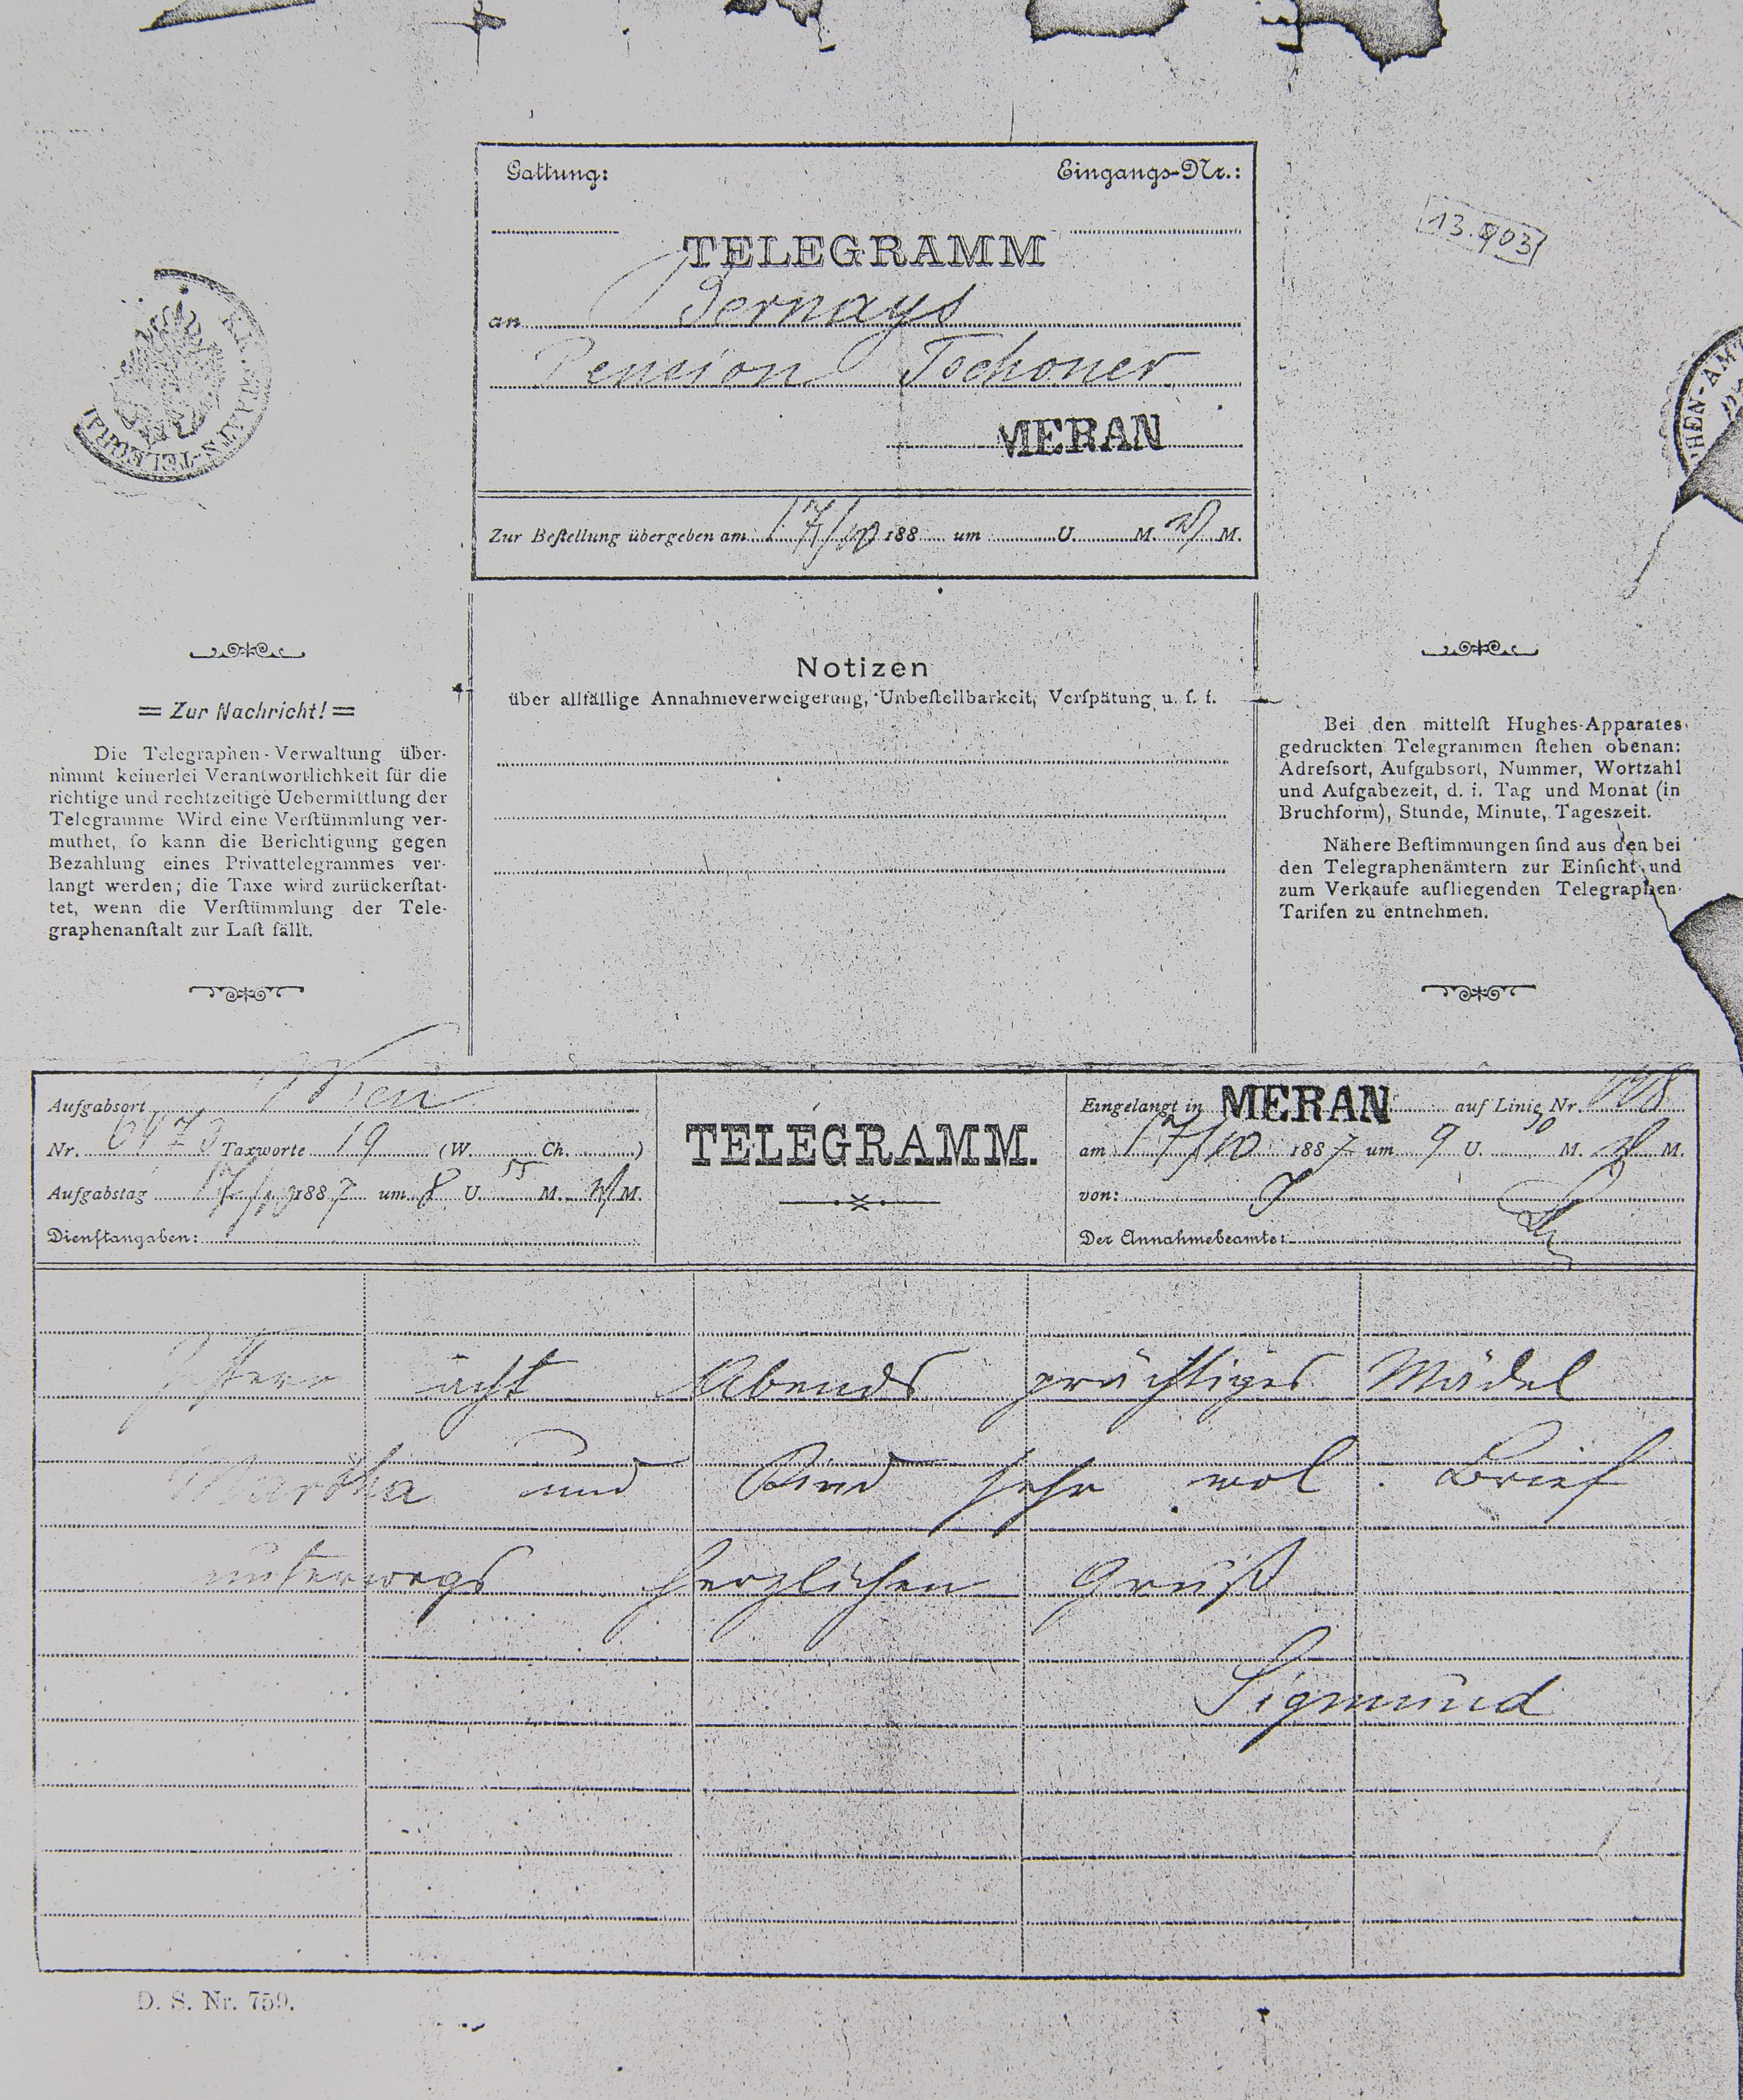 Gattung:
Eingangs-Nr.:
TELEGRAMM
13.903
an Bernays
Pension Tschoner
MERAN
K.K. STAATS-TELEGRA
HEN-AMT
Zur Beſtellung übergeben am 17/10 188 um U. M. M.
Notizen
über allfällige Annahmeverweigerung, Unbeſtellbarkeit, Verſpätung u. ſ. f.
= Zur Nachricht! =
Die Telegraphen-Verwaltung über-
nimmt keinerlei Verantwortlichkeit für die
richtige und rechtzeitige Uebermittlung der
Telegramme Wird eine Verſtümmlung ver-
muthet, ſo kann die Berichtigung gegen
Bezahlung eines Privattelegrammes ver-
langt werden; die Taxe wird zurückerſtat-
tet, wenn die Verſtümmlung der Tele-
graphenanſtalt zur Laſt fällt.
Bei den mittelſt Hughes-Apparates
gedruckten Telegrammen ſtehen obenan:
Adreſsort, Aufgabsort, Nummer, Wortzahl
und Aufgabezeit, d. i. Tag und Monat (in
Bruchform), Stunde, Minute, Tageszeit.
Nähere Beſtimmungen ſind aus den bei
den Telegraphenämtern zur Einſicht und
zum Verkaufe aufliegenden Telegraphen-
Tarifen zu entnehmen.
Aufgabsort Wien
Nr. Taxworte 19 (W. Ch. )
Aufgabstag 17/10 1887 um 8 U. 55 M. M.
Dienſtangaben:
TELEGRAMM.
Eingelangt in MERAN auf Linie Nr.
am 17/10 1887 um 9 U. 30 M. M.
von:
Der Annahmebeamte:
acht Abends prächtiges Mädel
Martha und Kind sehr wol. Brief
unterwegs herzlichen Gruß
Sigmund
D. S. Nr. 759.